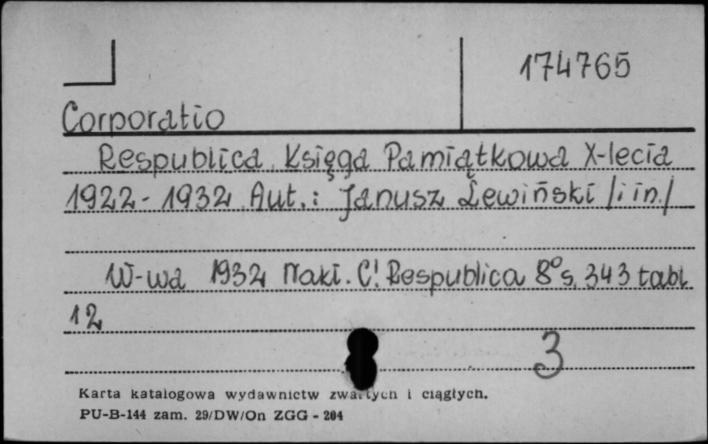 174765
Corporatio
Respublica. Księga Pamiątkowa X-lecia
1922-1932 Aut.: Janusz Lewiński /i in./
W-wa 1932 Nakł. C! Respublica 8° s. 343 tabl.
12
3
Karta katalogowa wydawnictw zwartych i ciągłych.
PU-B-144 zam. 29/DW/On ZGG - 204